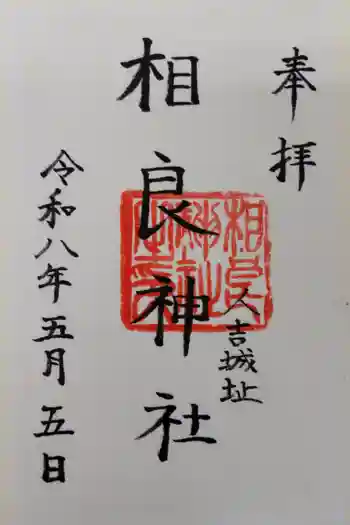 奉拝
人吉城址
相良神社
令和八年五月五日